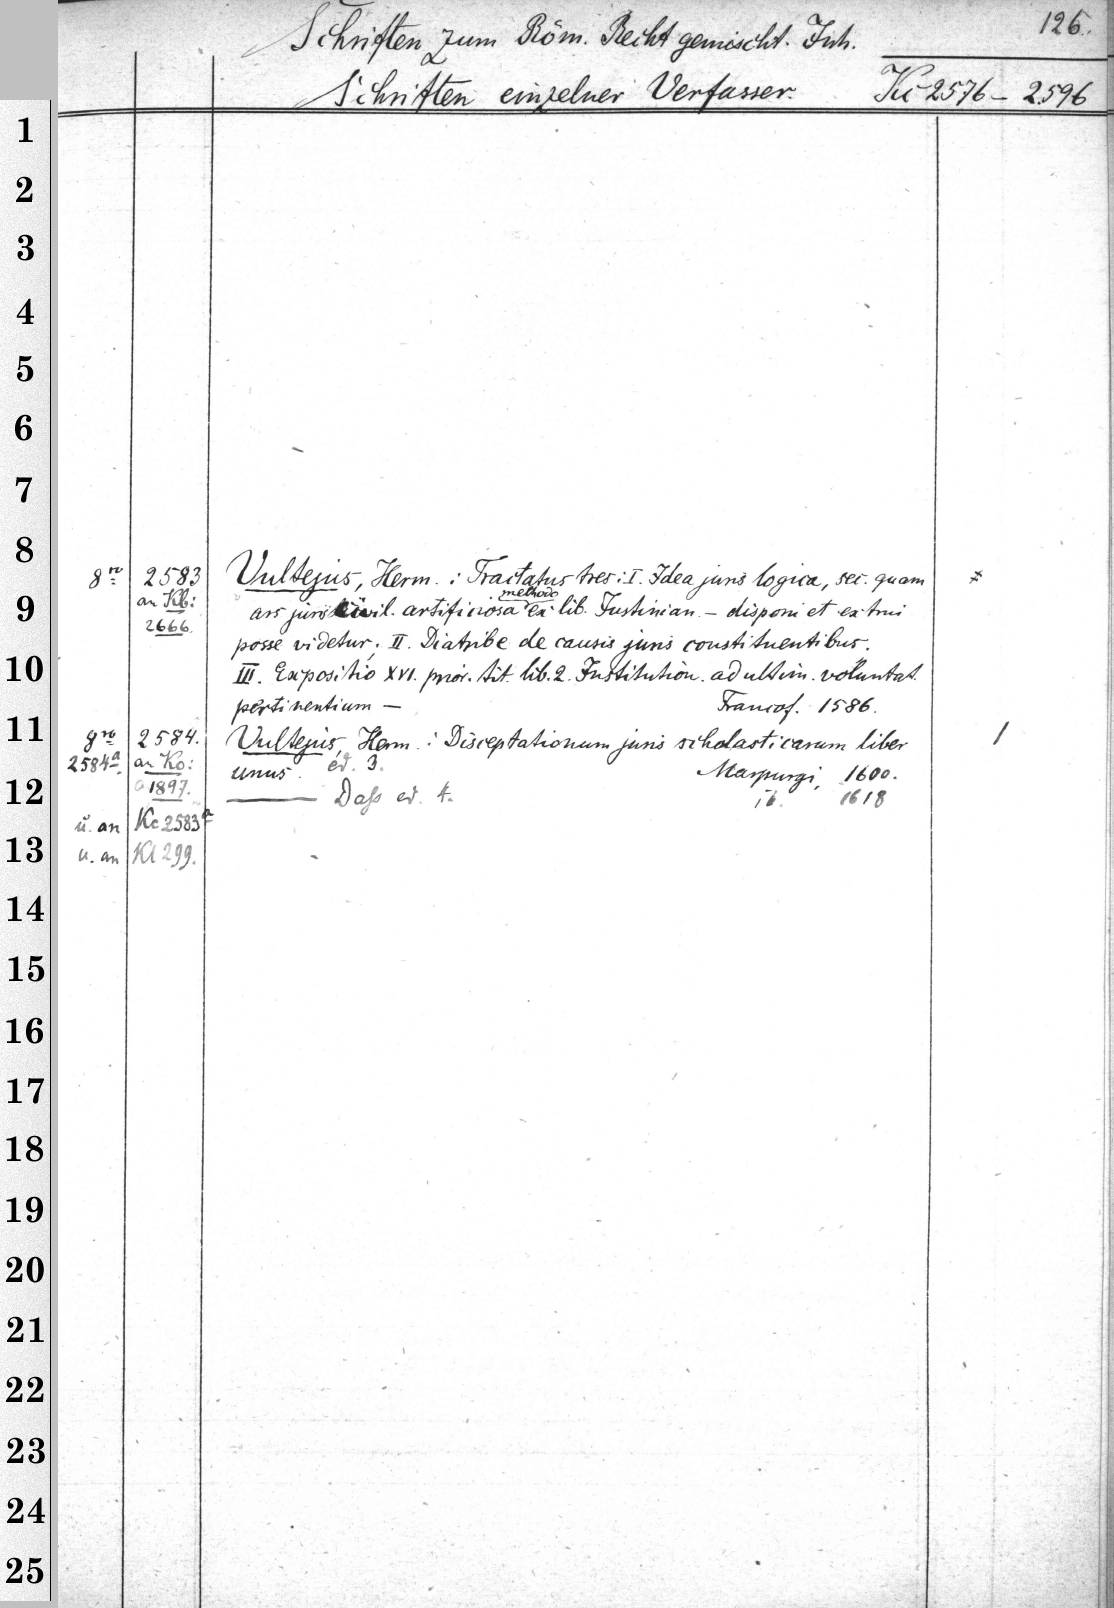 126.
Schriften zum Röm. Recht gemischt. Inh.
Schriften einzelner Verfasser. Kc 2576 – 2596
1
2
3
4
5
6
7
8
8ro 2583 Vultejus, Herm. : Tractatus tres: I. Idea juris logica, sec. quam
an Kb: methodo
9
ars juris civil. artificiosa ex lib. Justinian. – disponi et extrui
2666. posse videtur; II. Diatribe de causis juris constituentibus.
10
III. Expositio XVI. prior. tit. lib. 2. Institution. ad ultim. voluntat.
pertinentium — Francof. 1586.
11
8ro 2584. Vultejus, Herm. : Disceptationum juris scholasticarum liber
2584a an Ko: unus. ed. 3. Marpurgi, 1600.
12
1897. ——— Dass ed. 4. ib. 1618
u. an Kc 2583a
13
u. an Kl 299.
14
15
16
17
18
19
20
21
22
23
24
25